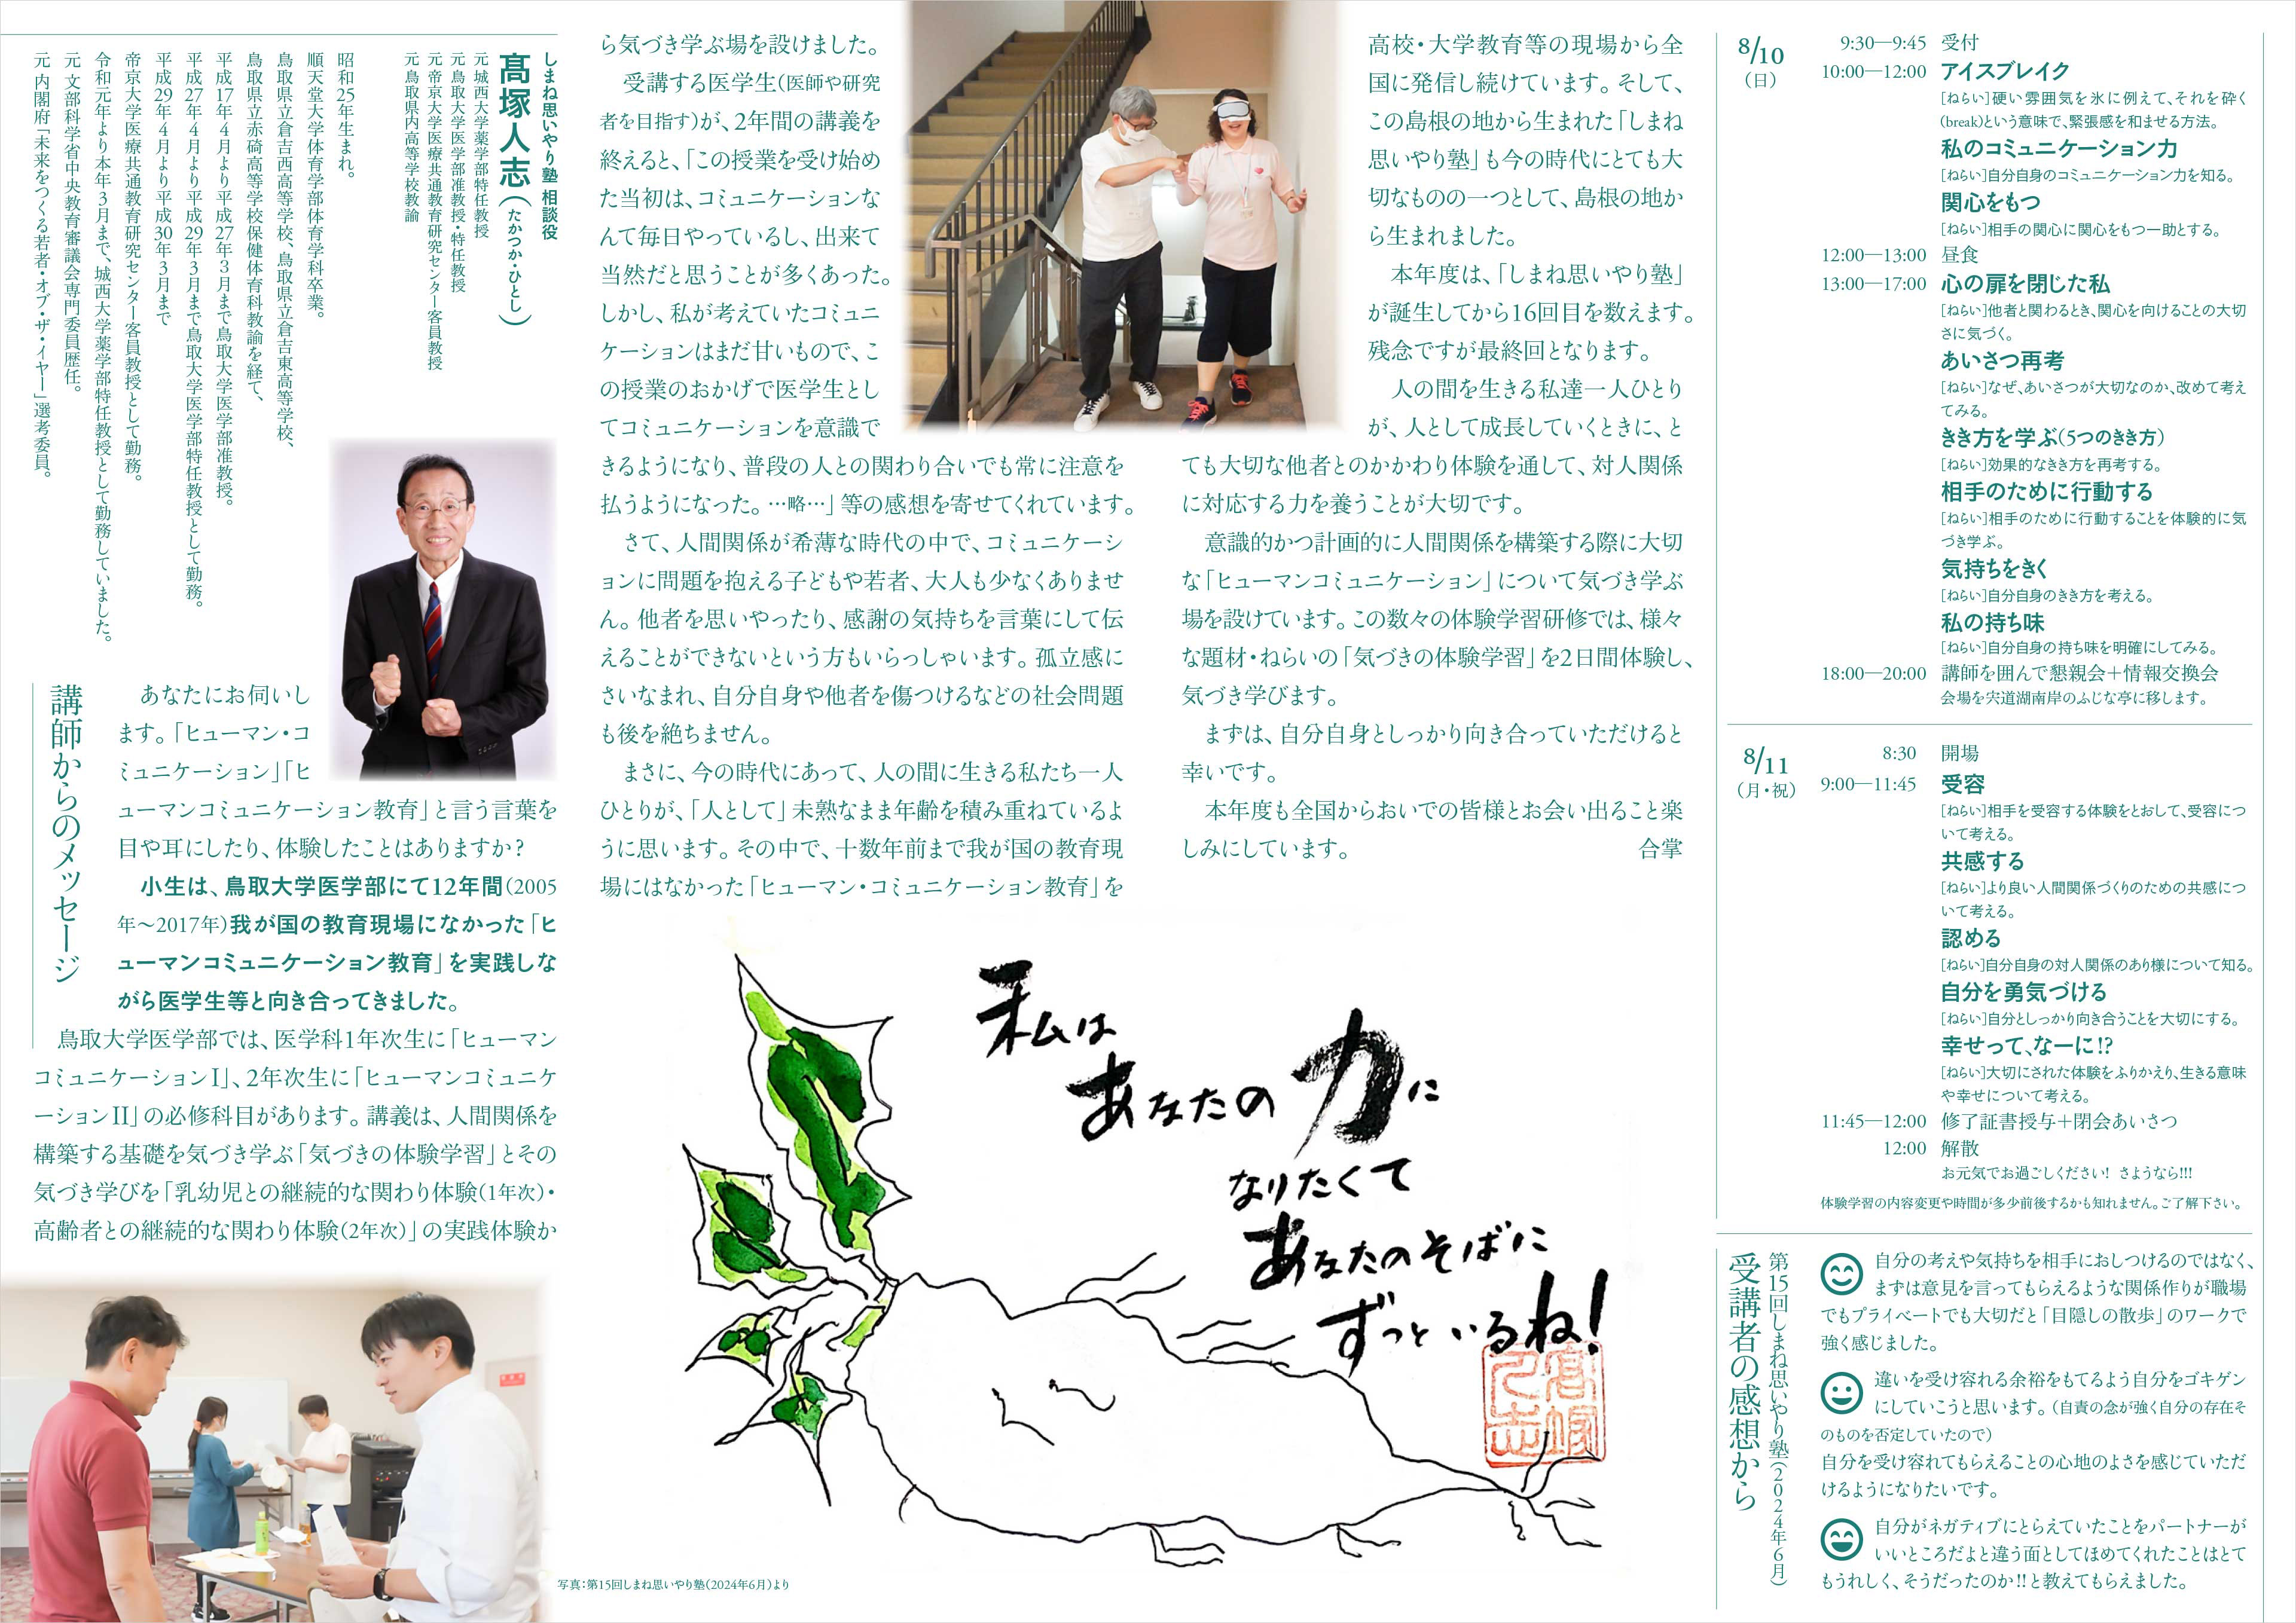 しまね思いやり塾 相談役
髙塚人志(たかつか・ひとし)
元 城西大学薬学部特任教授
元 鳥取大学医学部准教授・特任教授
元 帝京大学医療共通教育研究センター客員教授
元 鳥取県内高等学校教諭
昭和25年生まれ。
順天堂大学体育学部体育学科卒業。
鳥取県立倉吉西高等学校、鳥取県立倉吉東高等学校、
鳥取県立赤碕高等学校保健体育科教諭を経て、
平成17年4月より平成27年3月まで鳥取大学医学部准教授。
平成27年4月より平成29年3月まで鳥取大学医学部特任教授として勤務。
平成29年4月より平成30年3月まで
帝京大学医療共通教育研究センター客員教授として勤務。
令和元年より本年3月まで、城西大学薬学部特任教授として勤務していました。
元 文部科学省中央教育審議会専門委員歴任。
元 内閣府「未来をつくる若者・オブ・ザ・イヤー」選考委員。
講師からのメッセージ
あなたにお伺いし
ます。「ヒューマン・コ
ミュニケーション」「ヒ
ューマンコミュニケーション教育」と言う言葉を
目や耳にしたり、体験したことはありますか?
小生は、鳥取大学医学部にて12年間(2005
年〜2017年)我が国の教育現場になかった「ヒ
ューマンコミュニケーション教育」を実践しな
がら医学生等と向き合ってきました。
鳥取大学医学部では、医学科1年次生に「ヒューマン
コミュニケーションI」、2年次生に「ヒューマンコミュニケ
ーションII」の必修科目があります。講義は、人間関係を
構築する基礎を気づき学ぶ「気づきの体験学習」とその
気づき学びを「乳幼児との継続的な関わり体験(1年次)・
高齢者との継続的な関わり体験(2年次)」の実践体験か
ら気づき学ぶ場を設けました。
受講する医学生(医師や研究
者を目指す)が、2年間の講義を
終えると、「この授業を受け始め
た当初は、コミュニケーションな
んて毎日やっているし、出来て
当然だと思うことが多くあった。
しかし、私が考えていたコミュニ
ケーションはまだ甘いもので、こ
の授業のおかげで医学生とし
てコミュニケーションを意識で
きるようになり、普段の人との関わり合いでも常に注意を
払うようになった。…略…」等の感想を寄せてくれています。
さて、人間関係が希薄な時代の中で、コミュニケーシ
ョンに問題を抱える子どもや若者、大人も少なくありませ
ん。他者を思いやったり、感謝の気持ちを言葉にして伝
えることができないという方もいらっしゃいます。孤立感に
さいなまれ、自分自身や他者を傷つけるなどの社会問題
も後を絶ちません。
まさに、今の時代にあって、人の間に生きる私たち一人
ひとりが、「人として」未熟なまま年齢を積み重ねているよ
うに思います。その中で、十数年前まで我が国の教育現
場にはなかった「ヒューマン・コミュニケーション教育」を
高校・大学教育等の現場から全
国に発信し続けています。そして、
この島根の地から生まれた「しまね
思いやり塾」も今の時代にとても大
切なものの一つとして、島根の地か
ら生まれました。
本年度は、「しまね思いやり塾」
が誕生してから16回目を数えます。
残念ですが最終回となります。
人の間を生きる私達一人ひとり
が、人として成長していくときに、と
ても大切な他者とのかかわり体験を通して、対人関係
に対応する力を養うことが大切です。
意識的かつ計画的に人間関係を構築する際に大切
な「ヒューマンコミュニケーション」について気づき学ぶ
場を設けています。この数々の体験学習研修では、様々
な題材・ねらいの「気づきの体験学習」を2日間体験し、
気づき学びます。
まずは、自分自身としっかり向き合っていただけると
幸いです。
本年度も全国からおいでの皆様とお会い出ること楽
しみにしています。 合掌
私は
あなたの力に
なりたくて
あなたのそばに
ずっといるね!
髙塚人志
写真:第15回しまね思いやり塾(2024年6月)より
8/10
(日)
9:30—9:45 受付
10:00—12:00 アイスブレイク
[ねらい]硬い雰囲気を氷に例えて、それを砕く
(break)という意味で、緊張感を和ませる方法。
私のコミュニケーション力
[ねらい]自分自身のコミュニケーション力を知る。
関心をもつ
[ねらい]相手の関心に関心をもつ一助とする。
12:00—13:00 昼食
13:00—17:00 心の扉を閉じた私
[ねらい]他者と関わるとき、関心を向けることの大切
さに気づく。
あいさつ再考
[ねらい]なぜ、あいさつが大切なのか、改めて考え
てみる。
きき方を学ぶ(5つのきき方)
[ねらい]効果的なきき方を再考する。
相手のために行動する
[ねらい]相手のために行動することを体験的に気
づき学ぶ。
気持ちをきく
[ねらい]自分自身のきき方を考える。
私の持ち味
[ねらい]自分自身の持ち味を明確にしてみる。
18:00—20:00 講師を囲んで懇親会+情報交換会
会場を宍道湖南岸のふじな亭に移します。
8/11
(月・祝)
8:30 開場
9:00—11:45 受容
[ねらい]相手を受容する体験をとおして、受容につ
いて考える。
共感する
[ねらい]より良い人間関係づくりのための共感につ
いて考える。
認める
[ねらい]自分自身の対人関係のあり様について知る。
自分を勇気づける
[ねらい]自分としっかり向き合うことを大切にする。
幸せって、なーに!?
[ねらい]大切にされた体験をふりかえり、生きる意味
や幸せについて考える。
11:45—12:00 修了証書授与+閉会あいさつ
12:00 解散
お元気でお過ごしください! さようなら!!!
体験学習の内容変更や時間が多少前後するかも知れません。ご了解下さい。
第15回しまね思いやり塾(2024年6月)
受講者の感想から
自分の考えや気持ちを相手におしつけるのではなく、
まずは意見を言ってもらえるような関係作りが職場
でもプライベートでも大切だと「目隠しの散歩」のワークで
強く感じました。
違いを受け容れる余裕をもてるよう自分をゴキゲン
にしていこうと思います。(自責の念が強く自分の存在そ
のものを否定していたので)
自分を受け容れてもらえることの心地のよさを感じていただ
けるようになりたいです。
自分がネガティブにとらえていたことをパートナーが
いいところだよと違う面としてほめてくれたことはとて
もうれしく、そうだったのか!!と教えてもらえました。